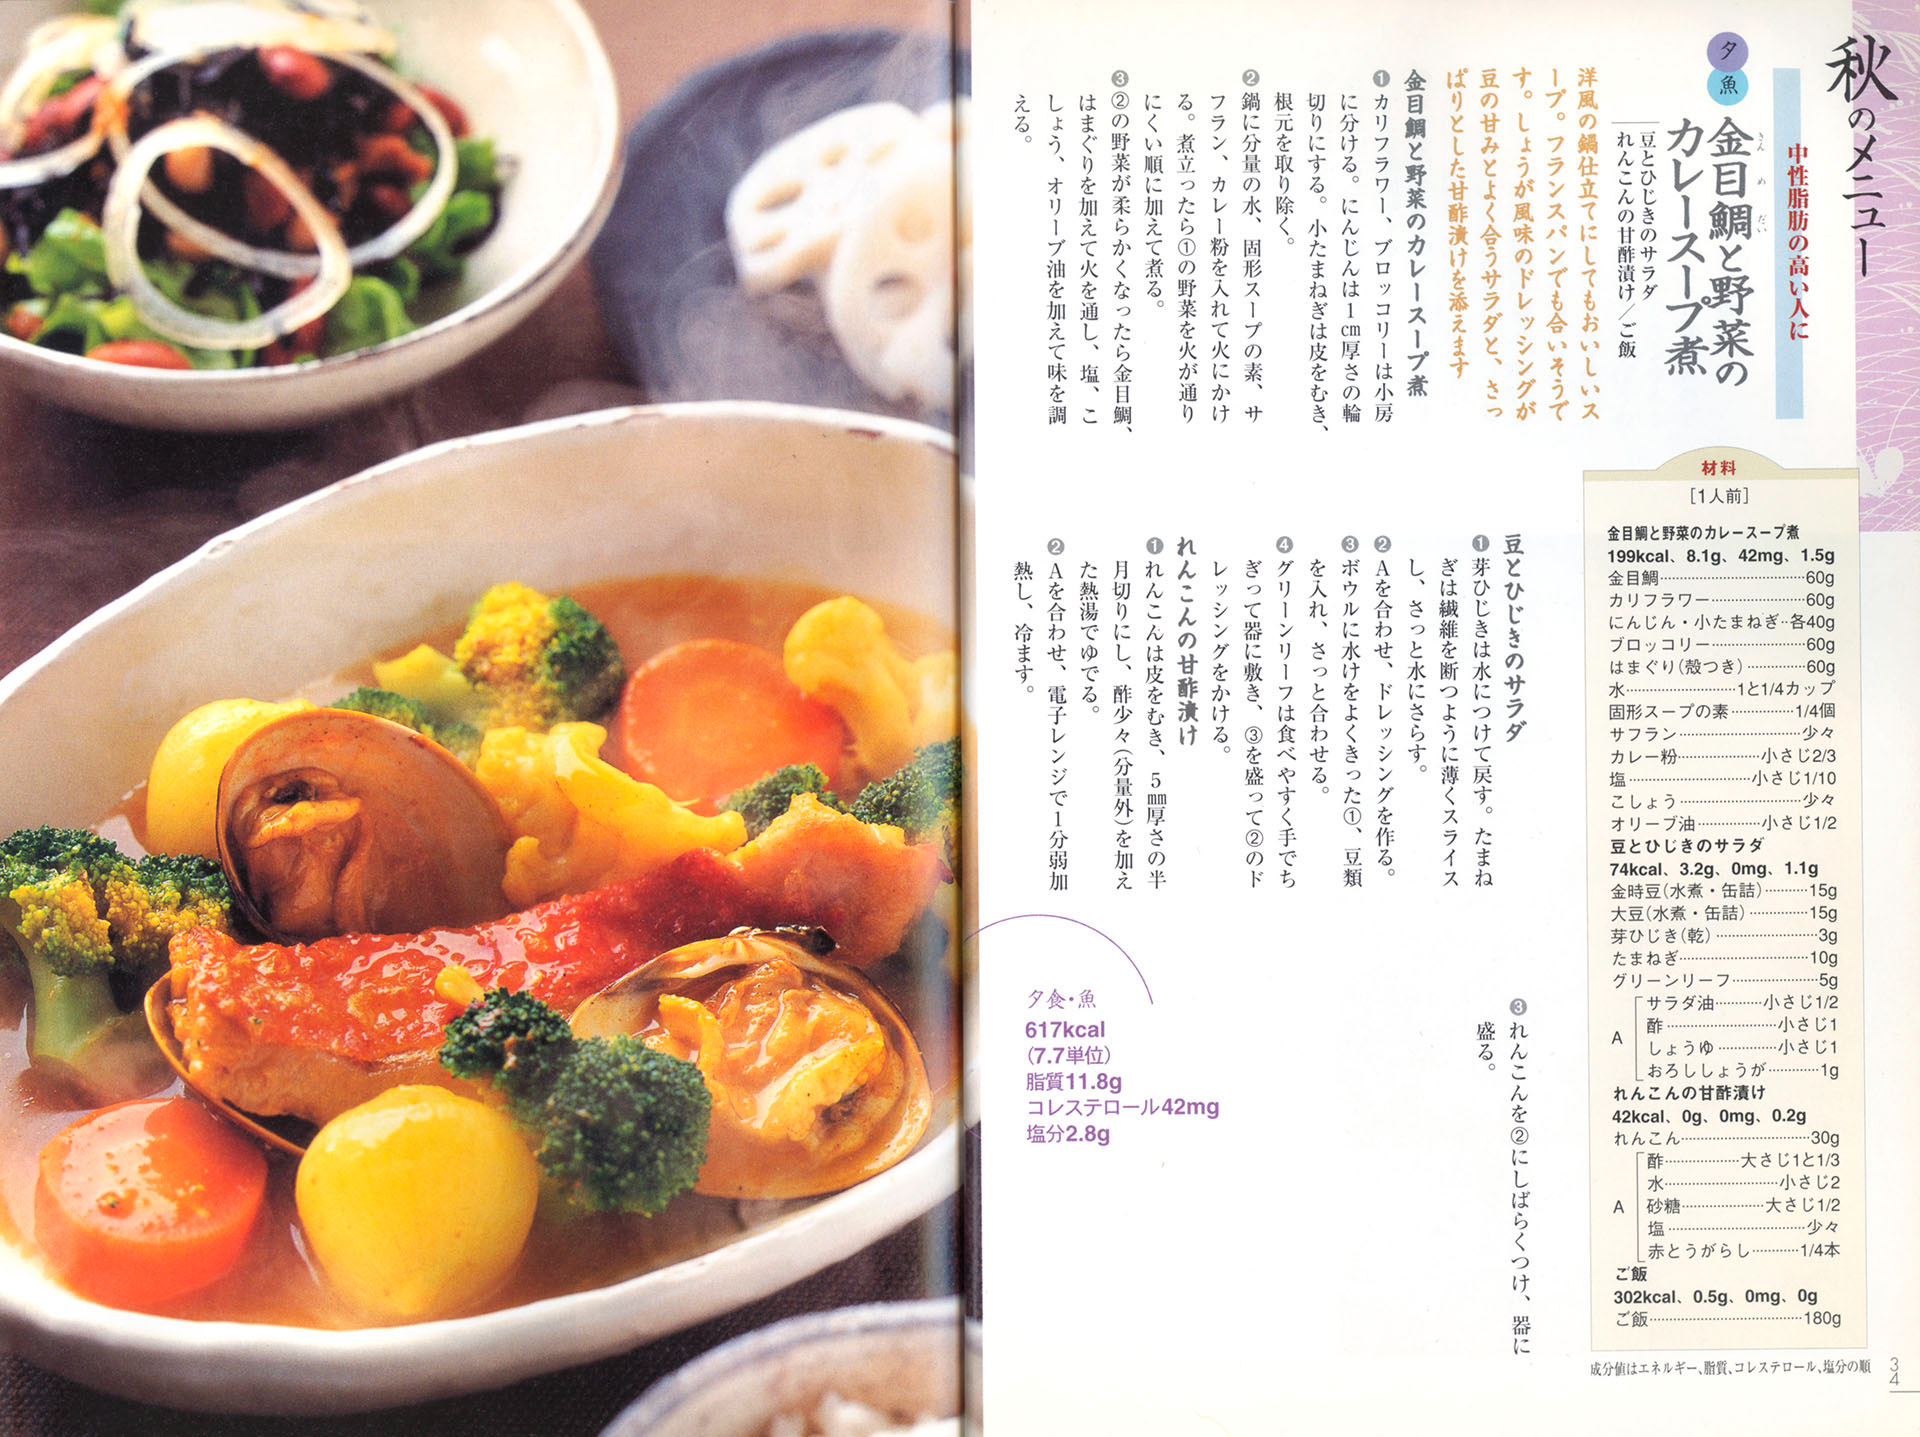 秋のメニュー
中性脂肪の高い人に
夕
魚
金目鯛と野菜の
きん め だい
カレースープ煮
豆とひじきのサラダ
れんこんの甘酢漬け／ご飯
洋風の鍋仕立てにしてもおいしいス
ープ。フランスパンでも合いそうで
す。しょうが風味のドレッシングが
豆の甘みとよく合うサラダと、さっ
ぱりとした甘酢漬けを添えます
金目鯛と野菜のカレースープ煮
❶カリフラワー、ブロッコリーは小房
に分ける。にんじんは1㎝厚さの輪
切りにする。小たまねぎは皮をむき、
根元を取り除く。
❷鍋に分量の水、固形スープの素、サ
フラン、カレー粉を入れて火にかけ
る。煮立ったら①の野菜を火が通り
にくい順に加えて煮る。
❸②の野菜が柔らかくなったら金目鯛、
はまぐりを加えて火を通し、塩、こ
しょう、オリーブ油を加えて味を調
える。
豆とひじきのサラダ
❶芽ひじきは水につけて戻す。たまね
ぎは繊維を断つように薄くスライス
し、さっと水にさらす。
❷Aを合わせ、ドレッシングを作る。
❸ボウルに水けをよくきった①、豆類
を入れ、さっと合わせる。
❹グリーンリーフは食べやすく手でち
ぎって器に敷き、③を盛って②のド
レッシングをかける。
れんこんの甘酢漬け
❶れんこんは皮をむき、5㎜厚さの半
月切りにし、酢少々（分量外）を加え
た熱湯でゆでる。
❷Aを合わせ、電子レンジで1分弱加
熱し、冷ます。
❸れんこんを②にしばらくつけ、器に
盛る。
夕食・魚
617kcal
（7.7単位）
脂質11.8g
コレステロール42mg
塩分2.8g
材料
［1人前］
金目鯛と野菜のカレースープ煮
199kcal、8.1g、42mg、1.5g
金目鯛……………60g
カリフラワー……………60g
にんじん・小たまねぎ‥各40g
ブロッコリー……………60g
はまぐり（殻つき）……………60g
水……………1と1/4カップ
固形スープの素……………1/4個
サフラン……………少々
カレー粉……………小さじ2/3
塩……………小さじ1/10
こしょう……………少々
オリーブ油……………小さじ1/2
豆とひじきのサラダ
74kcal、3.2g、0mg、1.1g
金時豆（水煮・缶詰）……………15g
大豆（水煮・缶詰）……………15g
芽ひじき（乾）……………3g
たまねぎ……………10g
グリーンリーフ……………5g
A
サラダ油……………小さじ1/2
酢……………小さじ1
しょうゆ……………小さじ1
おろししょうが……………1g
れんこんの甘酢漬け
42kcal、0g、0mg、0.2g
れんこん……………30g
A
酢……………大さじ1と1/3
水……………小さじ2
砂糖……………大さじ1/2
塩……………少々
赤とうがらし……………1/4本
ご飯
302kcal、0.5g、0mg、0g
ご飯……………180g
成分値はエネルギー、脂質、コレステロール、塩分の順
34